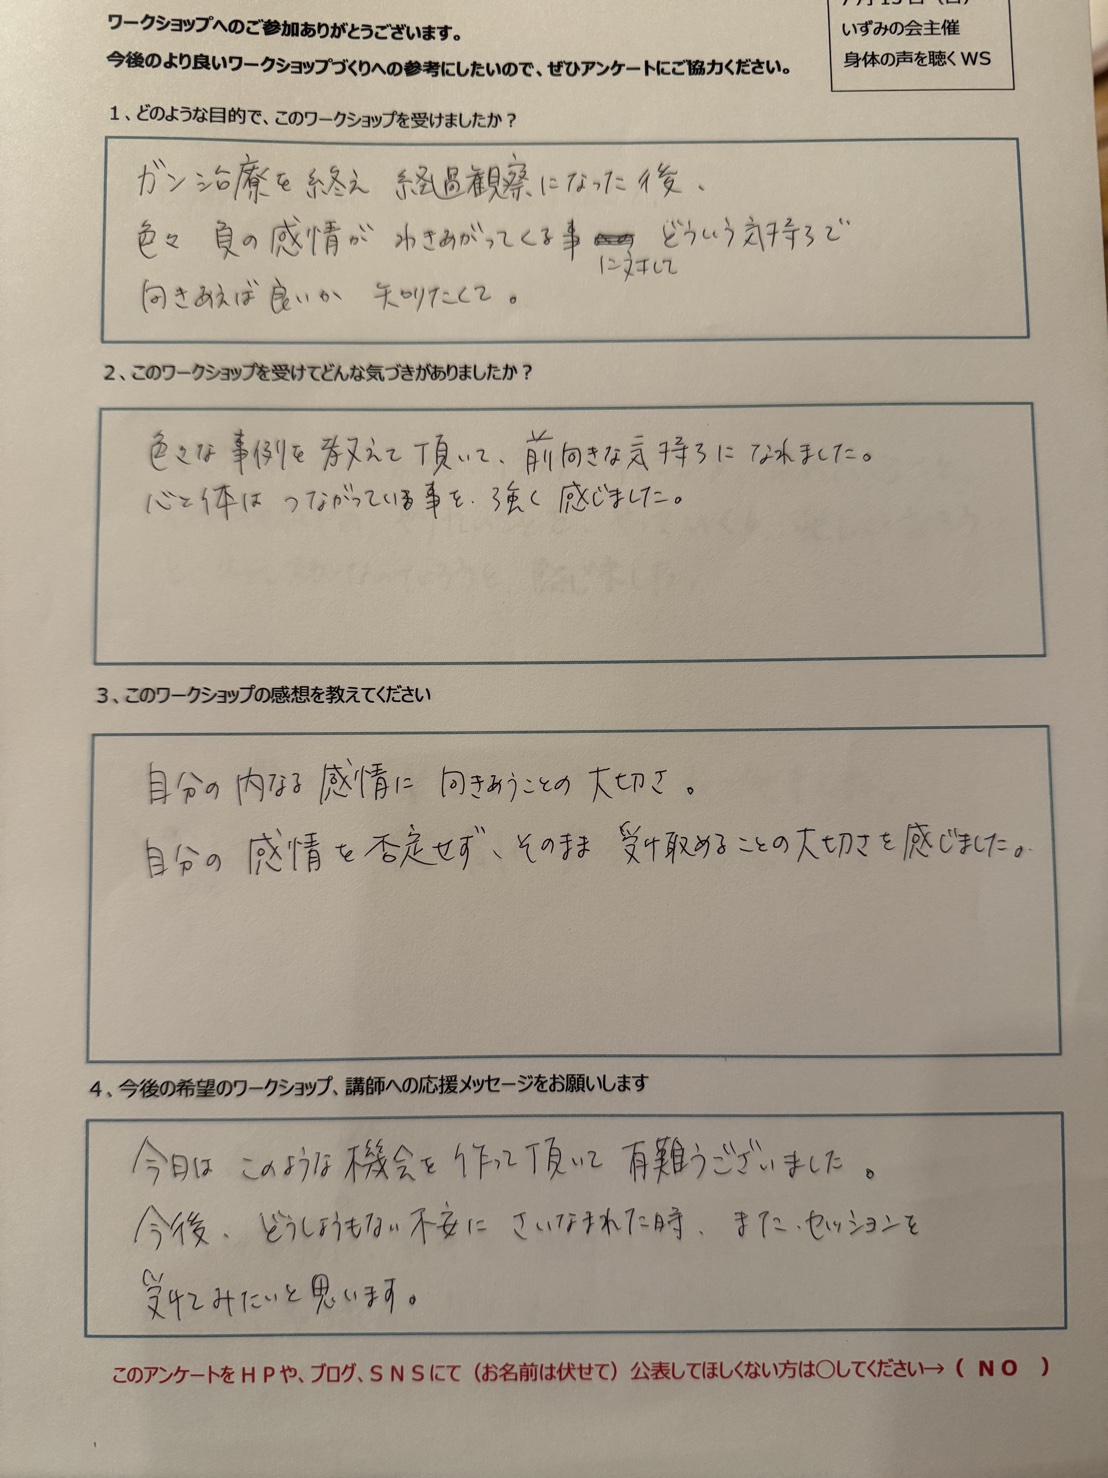 ワークショップへのご参加ありがとうございます。
今後のより良いワークショップづくりへの参考にしたいので、ぜひアンケートにご協力ください。
いずみの会主催
身体の声を聴くWS
1、どのような目的で、このワークショップを受けましたか？
ガン治療を終え 経過観察になった後、
色々 負の感情が わきあがってくる事 に対して どういう気持ちで
向きあえば良いか 知りたくて。
2、このワークショップを受けてどんな気づきがありましたか？
色々な事例を教えて頂いて、前向きな気持ちになれました。
心と体は つながっている事を、強く感じました。
3、このワークショップの感想を教えてください
自分の内なる感情に向きあうことの大切さ。
自分の感情を否定せず、そのまま受け取めることの大切さを感じました。
4、今後の希望のワークショップ、講師への応援メッセージをお願いします
今日は このような機会を作って頂いて有難うございました。
今後、どうしようもない不安に さいなまれた時、また、セッションを
受けてみたいと思います。
このアンケートをＨＰや、ブログ、ＳＮＳにて（お名前は伏せて）公表してほしくない方は〇してください→（ ＮＯ ）